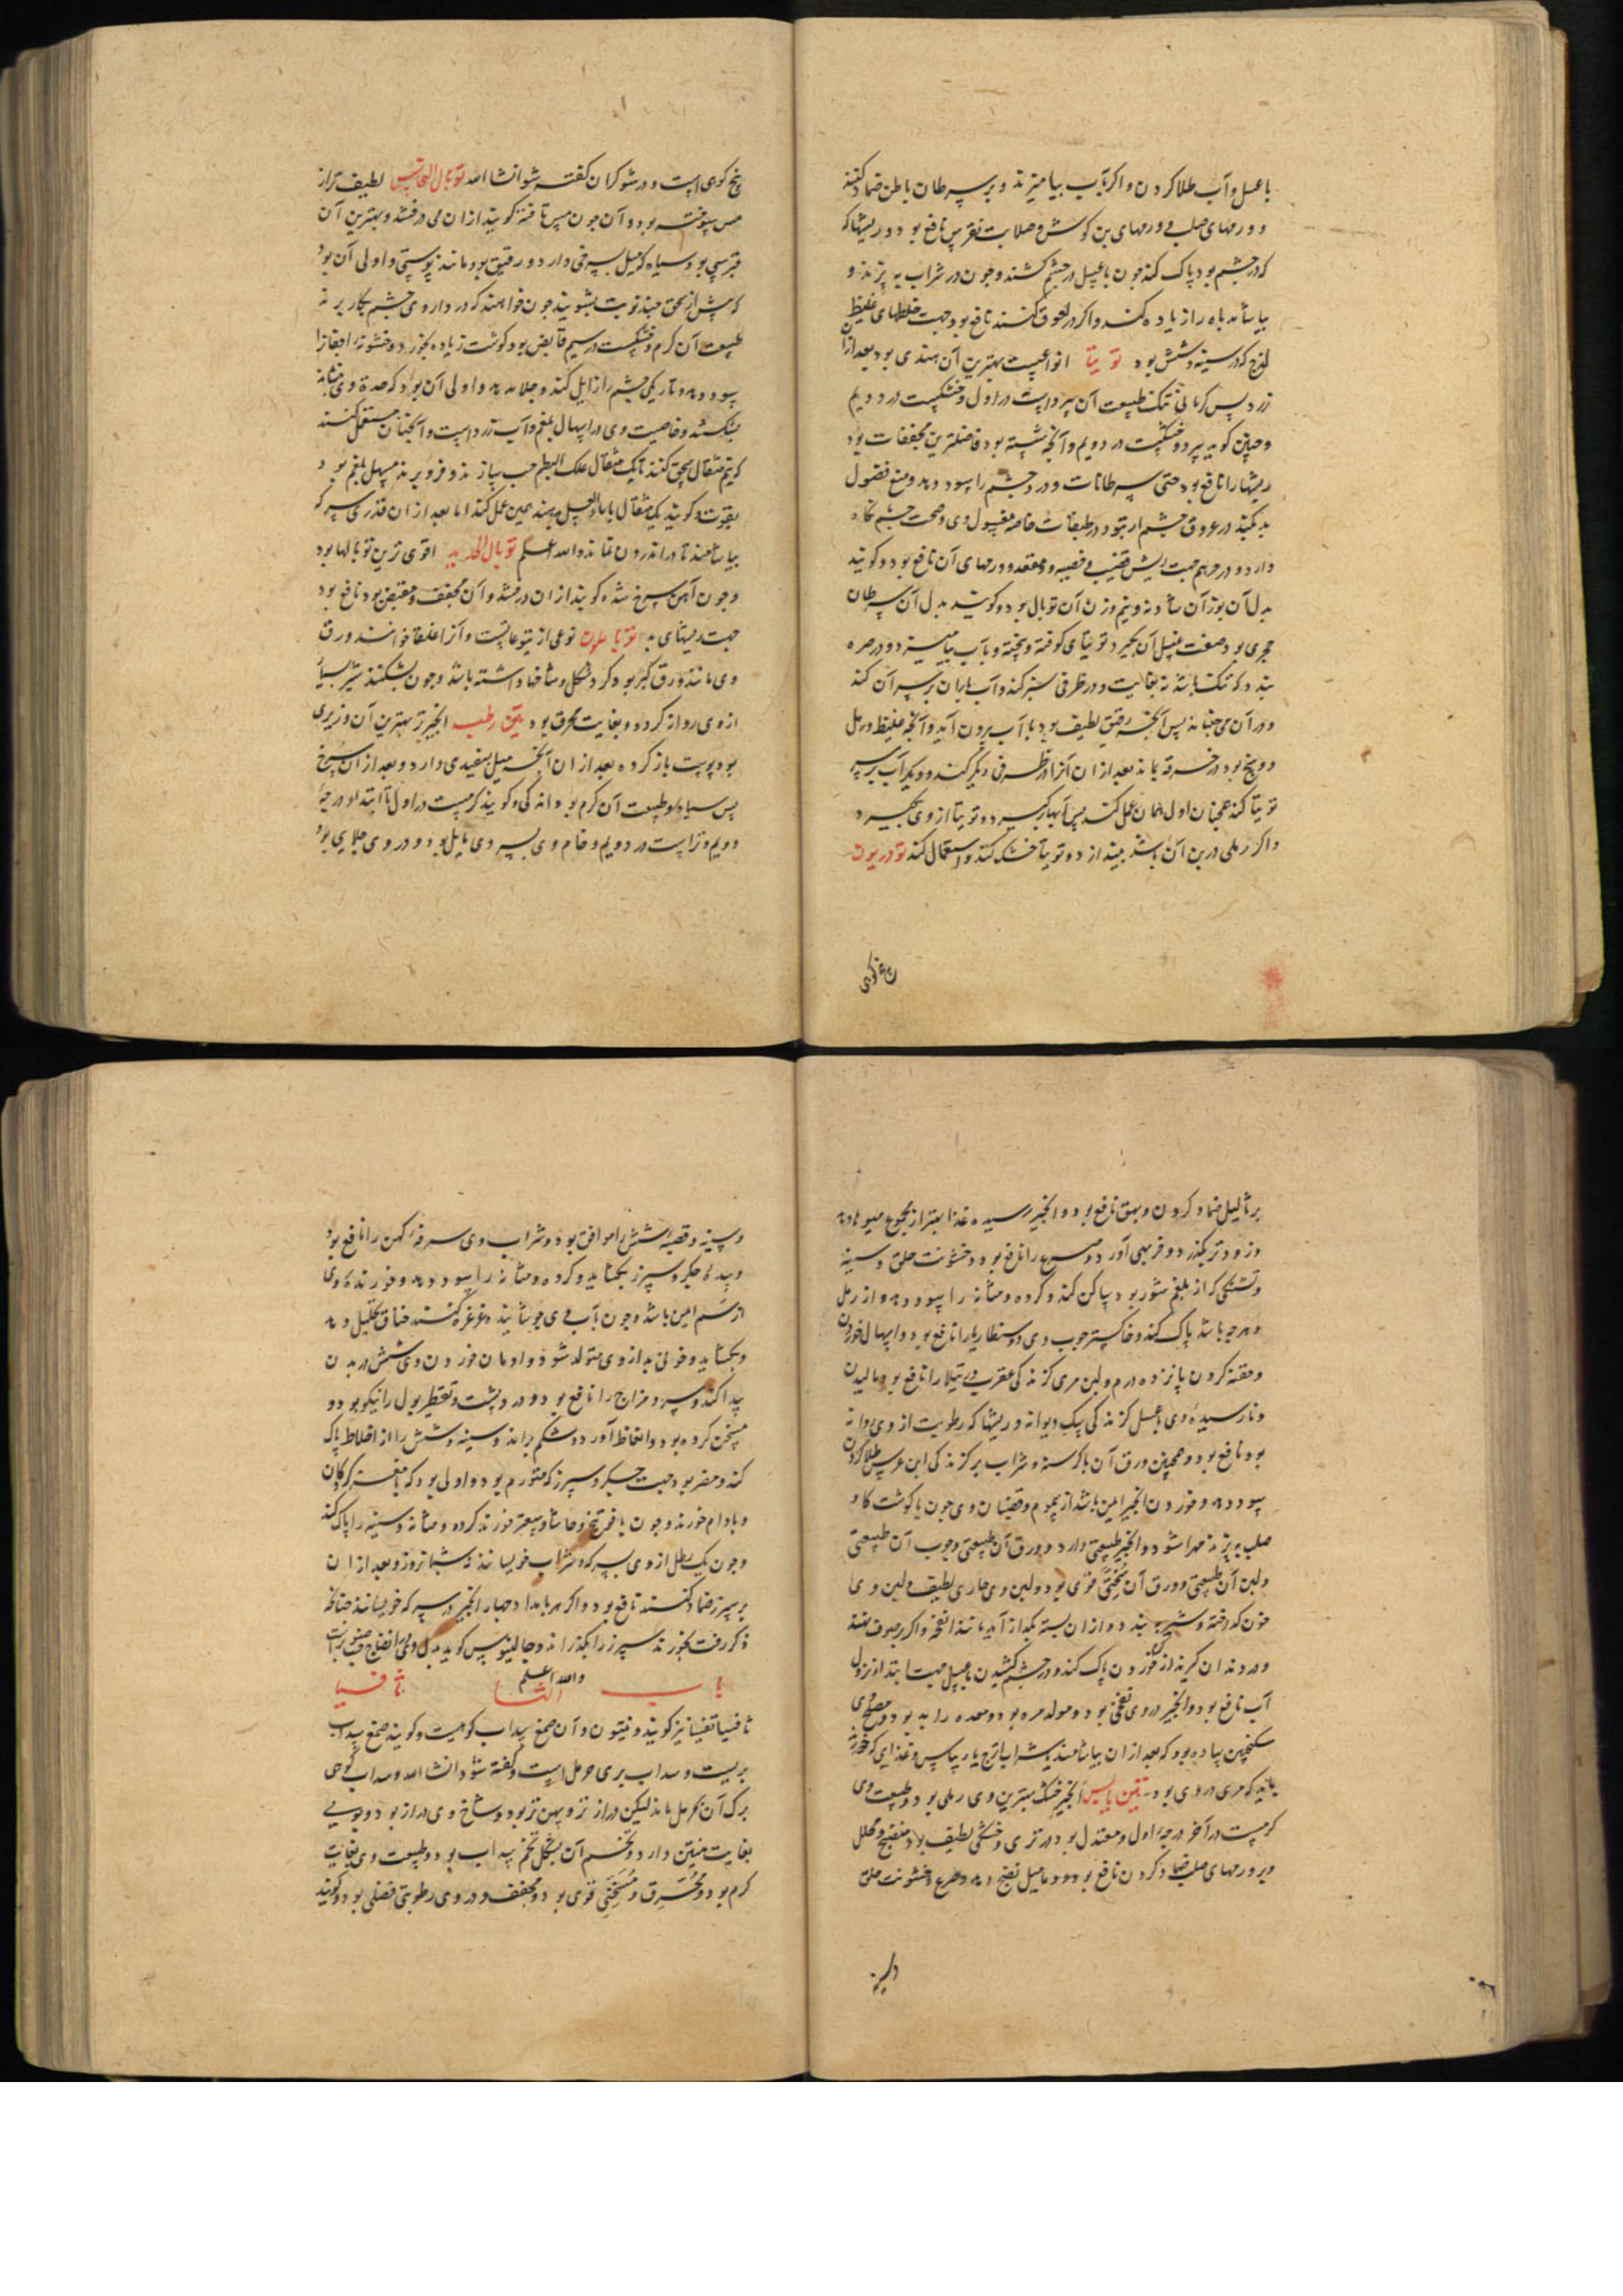 با عسل و آب طلا کردن و اکر بآب بیامیزند و بر سرطان باطن ضماد کنند
و ورمهای صلب و ورمهای بن کوش و صلابت نقرس نافع بود و ریشها که
که در چشم بود پاک کند چون با عسل در چشم کشند و چون در شراب به پزند و
بیاشامند باه را زیاده کند و اکر در لعوق کنند نافع بود جهت خلطهای غلیظ
لزج که در سینه و شش بود توتیا انواعیست بهترین آن هندی بود بعد از آن
زرد پس کرمانی تنک طبیعت آن سرد است در اول و خشکست در دویم
و کویند سرد و خشکست در دویم و آنچه شسته بود فاضلترین مجففات بود
ریشها را نافع بود حتی سرطانات و درد چشم را سود دهد و منع فضول
بد بکند در عروق چشم از نفوذ در طبقات خاصه مغسول وی و صحت چشم نکاه
دارد و در مرهم جهت ریش قضیب و خصیه و مقعد و ورمهای آن نافع بود و کویند
بدل آن بوزن آن شادنه و نیم وزن آن توبال بود و کویند بدل آن سرطان
بحری بود صفت غسل آن بکیرد توتیای کوفته و بیخته و بآب بیامیزد و در صره
بندد که تنک باشد نه بغایت و در ظرفی سبز کند و آب باران بر سر آن کند
و در آن می جنباند پس آنچه رقیق لطیف بود با آب برون آید و آنچه غلیظ و رمل
و وسخ بود در خرقه بماند بعد از آن آنرا در ظرفی دیکر کند و دیکر آب بر سر
توتیا کند همچنان اول همان عمل کند پس آبها بکیرد و توتیا از وی بکیرد
و اکر رملی در بن آن باشد بیندازد و توتیا خشک کند و استعمال کند تودریون
بخ کوهی
بخ کوهی است و در شوکران کفته شود انشا الله توبال النحاس لطیف تر از
مس سوخته بود و آن چون مس تافته کویند از آن می درفشد و بهترین آن
قبرسی بود و سیاه که میل بسرخی دارد و رقیق بود مانند پوستی و اولی آن بود
که پیش از سحق چند نوبت بشویند چون خواهند که در داروی چشم بکار برند
طبیعت آن کرم و خشکست در سیم قابض بود کوشت زیاده بخورد و خشونة اجفانرا
سود دهد و تاریکی چشم را زایل کند و جلا دهد و اولی آن بود که حدة وی بنشاسته
بشکنند و خاصیت وی در اسهال بلغم و آب زرد است و آنچنان مستعمل کنند
که نیم مثقال سحق کنند با یک مثقال علک البطم حب سازند و فرو برند مسهل بلغم بود
بقوت و کویند یک مثقال با ماء العسل بدهند همین عمل کند اما بعد از آن قدری سرکه
بیاشامند تا در اندرون نماند والله اعلم توبال الحدید اقوی ترین توبالها بود
و چون آهن سرخ شده کویند از آن درفشد و آن مجفف و مقبض بود نافع بود
جهت ریشهای بد نوعی از یتوعاتست و آنرا خوانند ورق
وی مانند ورق کبر بود کرد شکل و شاخها داشته باشد و چون بشکنند شیر بسیار
از وی روانه کردد و بغایت محرق بود تین رطب انجیر تر بهترین آن وزیری
بود پوست باز کرده بعد از آن آنچه میل بسفیدی دارد و بعد از آن سرخ
پس سیاه و طبیعت آن کرم بود اندکی و کویند کرمست در اول تا ابتداء درجه
دویم و تر است در دویم و خام وی بسردی مایل بود و در وی جلایی بود
بر ثالیل ضماد کردن و بهق نافع بود و انجیر رسیده غذا بهتر از مجموع میوها دهد
و زودتر بکذرد و فربهی آورد و صرع را نافع بود و خشونت حلق و سینه
و تشنکی که از بلغم شور بود ساکن کند و کرده و مثانه را سود دهد و از رمل
و هرچه باشد پاک کند و خاکستر چوب وی دوسنطاریا را نافع بود و اسهال خوردن
و حقنه کردن پانزده درم و لبن مری کزندکی عقرب و رتیلا را نافع بود مالیدن
و نارسیده وی با عسل کزندکی سک دیوانه و ریشها که رطوبت از وی روانه
بود نافع بود و همچنین ورق آن با کرسنه و شراب بر کزندکی ابن عرس طلا کردن
سود دهد و خوردن انجیر امین باشد از سموم و قضبان وی چون با کوشت کاو
صلب به پزند مهرا شود و انجیر طبیعتی دارد و ورق آن طبیعتی و چوب آن طبیعتی
و لبن آن طبیعتی و ورق آن مسخنی قوی بود و لبن وی حاری لطیف و لبن وی
خون کداخته و شیر به بندد و از آن بسته بکدازاند مانند انفحه و اکر بر صوف نهند
و در دندان کیرند از خوردن پاک کند و در چشم کشیدن با عسل جهت ابتداء نزول
آب نافع بود و انجیر در وی نفخی بود و مولد مره بود و معده را بد بود و مصلح وی
سکنجبین ساده بود که بعد از آن بیاشامند یا شراب اترج یا ریباس و غذایی که خورند
باید که مری در وی بود تین یابس انجیر خشک بهترین وی رملی بود و طبیعت وی
کرمست در آخر درجه اول و معتدل بود در تری و خشکی لطیف بود منضج و محلل
و بر ورمهای صلب ضماد کردن نافع بود و دمامیل نضج دهد و صرع و خشونت حلق
و سینه
۹۶
و سینه و قصبه شش را موافق بود و شراب وی سرفه کهن را نافع بود
و سده جکر و سپرز بکشاید و کرده و مثانه را سود دهد و خورنده وی
از سم امین باشد و چون بآب وی جوشانیده غرغره کنند خناق تحلیل دهد
و بکشاید و خونی بد از وی متولد شود و ادمان خوردن وی شپش در بدن
پیدا کند و سرد مزاج را نافع بود و درد پشت و تقطیر بول را نیکو بود و
مسخن کرده بود و انعاظ آورد و شکم براند و سینه و شش را از اخلاط پاک
کند و مضر بود جهت جکر و سپرز که متورم بود و اولی بود که با مغز کردکان
و بادام خورند و چون با فوتنج و حاشا و سعتر خورند کرده و مثانه و سینه را پاک کند
و چون یک رطل از وی بسرکه و شراب خویسانند نه شبانروز و بعد از آن
بر سپرز ضماد کنند نافع بود و اکر هر بامداد چهار انجیر در سرکه خویسانند چنانکه
ذکر رفت بخورند سپرز را بکدازاند و جالینوس کوید بدل وی انضاج
والله اعلم
باب الثا ثافسیا
ثافسیا تفسیا نیز کویند و نیتون و آن صمغ سداب کوهیست و کویند صمغ سداب
بریست و سداب بری حرمل است و کفته شود انشا الله و سداب کوهی
برک آن بحرمل ماند لیکن دراز تر و پهن تر بود و شاخ وی دراز بود و بویی
بغایت منتن دارد و تخم آن بشکل تخم سداب بود و طبیعت وی بغایت
کرم بود و محرق و مسخنی قوی بود و مجفف و در وی رطوبتی فضلی بود و کویند